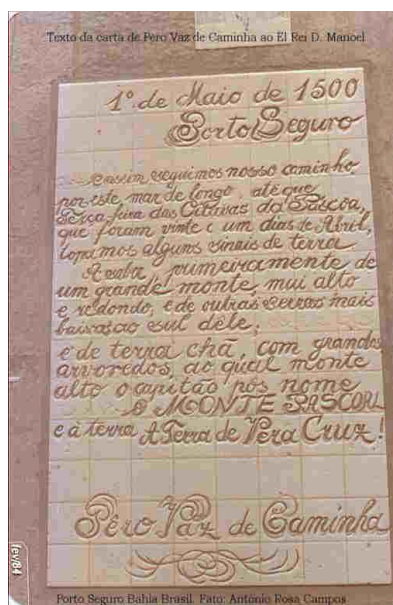 Texto da carta de Pero Vaz de Caminha ao El Rei D. Manoel
1º de Maio de 1500
Porto Seguro
E assim seguimos nosso caminho,
por este mar de longo, até que
Terça feira das Oitavas da Páscoa,
que foram vinte e um dias de Abril,
topamos alguns sinais de terra.
A saber, primeiramente de
um grande monte, mui alto
e redondo, e de outras serras mais
baixas ao sul dele;
e de terra chã, com grandes
arvoredos, ao qual monte
alto o capitão pôs nome
O MONTE PASCOAL
e à terra A Terra de Vera Cruz!
Pêro Vaz de Caminha
fev/84
Porto Seguro Bahia Brasil. Foto: António Rosa Campos